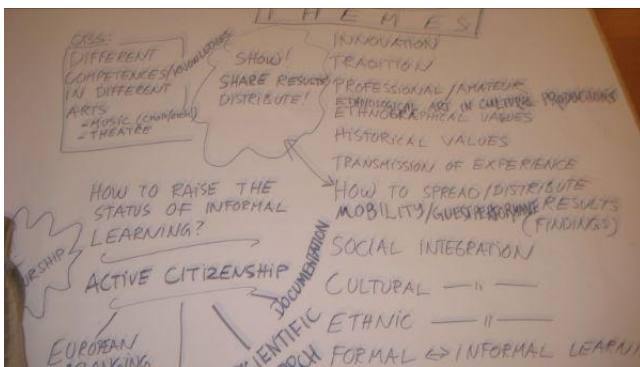 THEMES
CASE:
DIFFERENT
COMPETENCES/KNOWLEDGE
IN DIFFERENT
ARTS
- MUSIC
- THEATRE
SHOW!
SHARE RESULTS
DISTRIBUTE!
INNOVATION
TRADITION
PROFESSIONAL/AMATEUR
ART IN CULTURAL PRODUCTIONS
ETHNOGRAPHICAL VALUES
HISTORICAL VALUES
TRANSMISSION OF EXPERIENCE
HOW TO SPREAD/DISTRIBUTE
RESULTS
MOBILITY/GUESTPERFORMANCE
(FINDINGS)
SOCIAL INTEGRATION
CULTURAL —"—
ETHNIC —"—
FORMAL ⇔ INFORMAL LEARNI
HOW TO RAISE THE
STATUS OF INFORMAL
LEARNING?
URSHIP
ACTIVE CITIZENSHIP
DOCUMENTATION
EUROPEAN